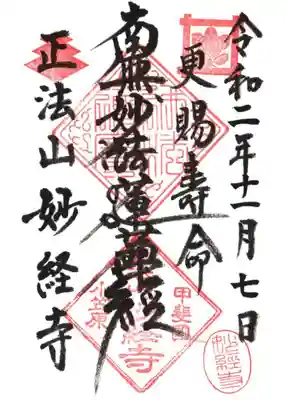 令和二年十一月七日
更賜寿命
南無妙法蓮華経
正法山妙経寺
甲斐国
小笠原
妙経寺